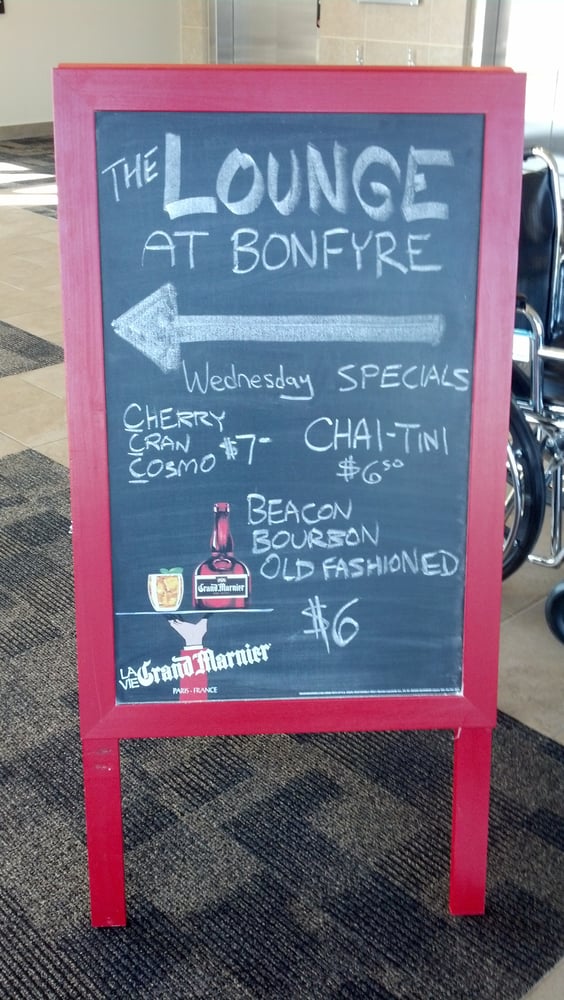 THE LOUNGE
AT BONFYRE
Wednesday SPECIALS
CHERRY
CRAN
COSMO
$7-
CHAI-TINI
$6.50
BEACON
BOURBON
OLD FASHIONED
$6
Grand Marnier
LA
VIE
Grand Marnier
PARIS - FRANCE